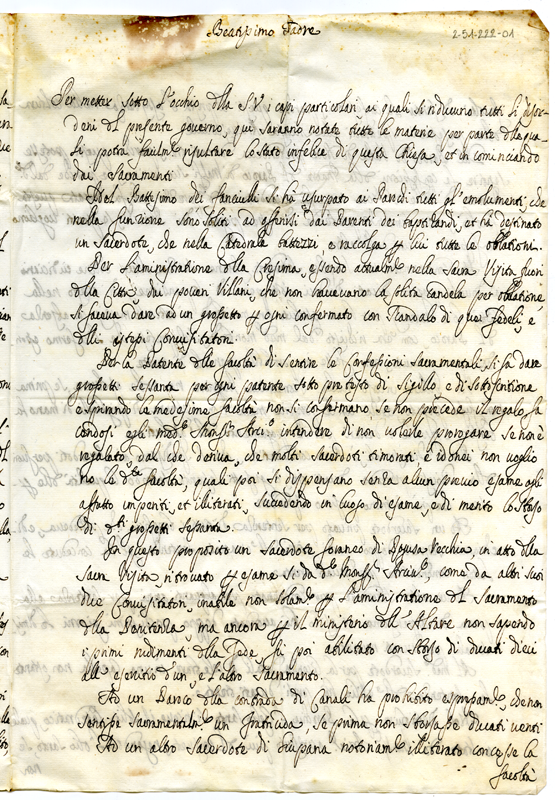 2-51-222-01
Beatissimo Padre
Per metter sotto l'occhio della S.V. i casi particolari ai quali si riducono tutti li disor-
deni del presente governo, qui saranno notate tutte le materie per parte dalle qua-
li potrà facilm.te risultare lo stato infelice di questa Chiesa, et in cominciando
dai Sacramenti
Nel Battesimo dei fanciulli si ha usurpato ai Parochi tutti gl'emolumenti, che
nella funzione sono soliti ad offerirsi dai Parenti dei battizandi, et ha destinato
un Sacerdote, che nella Catedrale battezzi, e raccolga p lui tutte le oblationi.
Per l'aministratione della Cresima, essendo attualm.te nella Sacra Visita fuori
della Città dai poveri Villani, che non havevano la solita Candela per oblatione,
si faceva dare ad un grossetto p ogni confermato con scandalo di quei Fedeli e
delli istessi Convisitatori.
Per la Patente delle facoltà di sentire le Confessioni Sacramentali si fa dare
grossetti sessanta per ogni patente sotto pretesto di sigillo e di sottoscrittione
e spirando le medesime facoltà non si confermano se non precede il regalo fa
cendosi egli med.mo Mons.r Arciv.o intendere di non volerle prorogare se non è
regalato, dal che deriva, che molti Sacerdoti timorati, e idonei non voglio
no le d.te facoltà, quali poi si dispensano senza alcun previo esame agli
affatto imperiti, et illiterati, succedendo in luogo di esame, e di merito lo sborso
di d.ti grossetti sessanta.
In questo proposito un Sacerdote foraneo di Ragusa Vecchia, in atto della
Sacra Visita ritrovato p esame sì da d.to Mons.r Arciv.o, come da altri suoi
due Convisitatori, inabile non solam.te p l'aministratione del Sacramento
della Penitenza, ma ancora p il ministerio dell'Altare non sapendo
i primi rudimenti della Fede, fù poi abilitato con sborso di ducati dieci
all'esercitio d'un, e l'altro Sacramento.
Ad un Paroco della contrada di Canali ha prohibito espressam.te, che non
sentisse Sacramentalm.te un Homicida, se prima non sborsasse ducati venti
Ad un altro Sacerdote di Giupana notoriam.te illiterato concesse la
facoltà